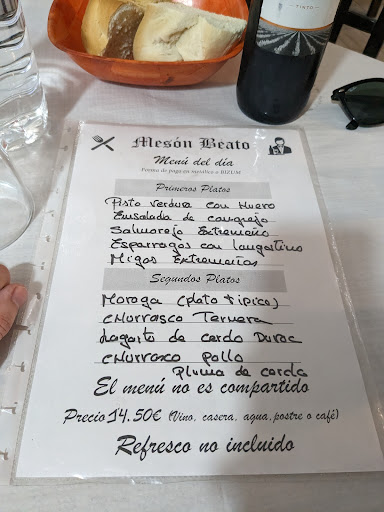 TINTO
Mesón Beato
Menú del día
Forma de pago en metálico o BIZUM
Primeros Platos
Pisto verdura con Huevo
Ensalada de cangrejo
Salmorejo Extremeño
Esparragos con langostino
Migas Extremeñas
Segundos Platos
Moraga (plato típico)
CHurrasco Ternera
Lagarto de cerdo Duroc
CHurrasco pollo
Pluma de cerdo
El menú no es compartido
Precio 14.50€ (Vino, casera, agua, postre o café)
Refresco no incluido